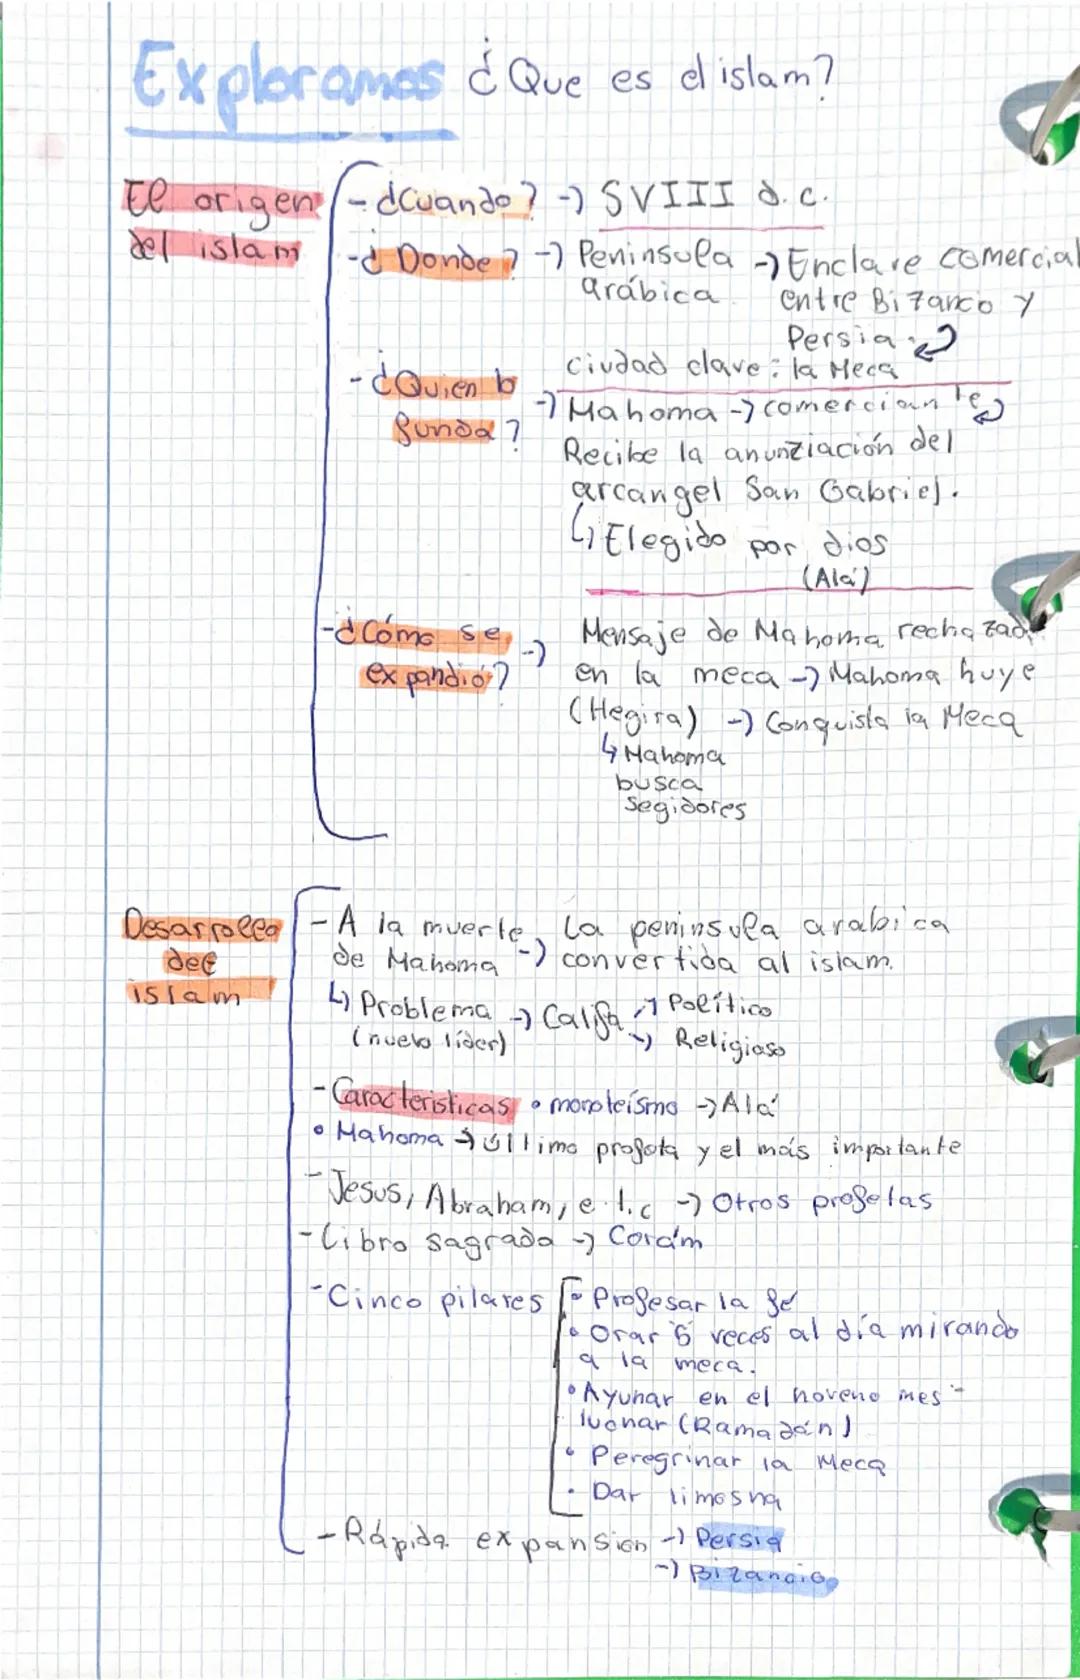 Exploramos ¿Que es el islam?
El origen
del islam
- ¿Cuando? -> SVIII d.c.
- ¿Donde? -> Peninsula -> Enclave comercial
arábica entre Bizancio y
Persia
ciudad clave: la Meca
- ¿Quien lo
funda?
-> Mahoma -> comerciante
Recibe la anunziación del
arcangel San Gabriel.
↳ Elegido por dios
(Alá)
- ¿Cómo se
expandió? ->
Mensaje de Mahoma rechazado
en la meca -> Mahoma huye
(Hegira) -> Conquista la Meca
↳ Mahoma
busca
segidores
Desarrollo
del
islam
- A la muerte La peninsula arabica
de Mahoma -> convertida al islam.
↳ Problema -> Califa -> Político
(nuevo líder) -> Religioso
- Caracteristicas • monoteísmo -> Alá
• Mahoma -> último profeta y el más importante
- Jesus, Abraham, e.t.c -> Otros profetas
- Libro sagrado -> Corám
- Cinco pilares • Profesar la fé
• Orar 5 veces al día mirando
a la meca.
• Ayunar en el noveno mes
luonar (Ramadán)
• Peregrinar la Meca
• Dar limosna
- Rápida expansion -> Persia
-> Bizancio